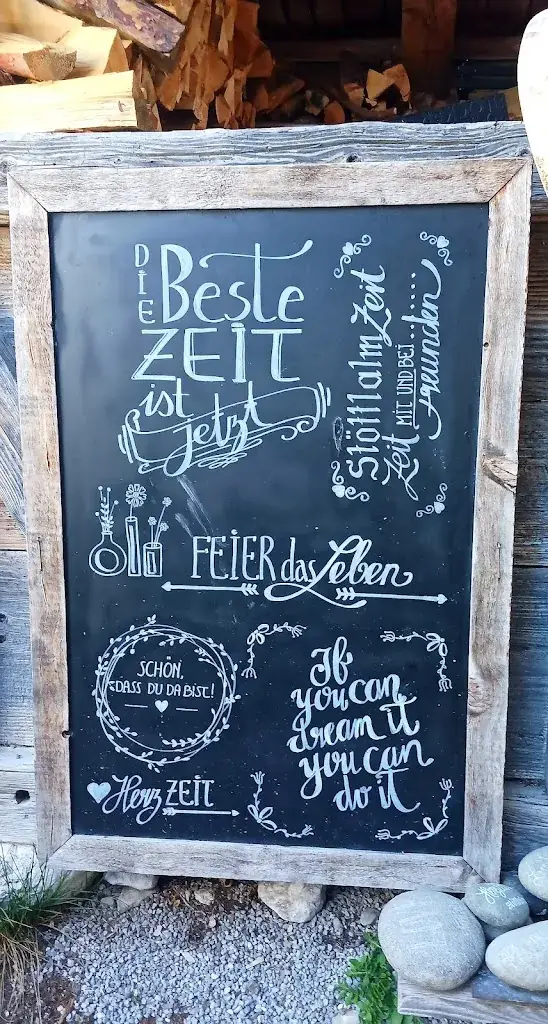 DIE
Beste
ZEIT
ist
jetzt
Stöttlalm Zeit
Zeit MIT UND BEI .......
Freunden
FEIER das Leben
SCHÖN,
DASS DU DA BIST!
Herz ZEIT
If
you can
dream it
you can
do it